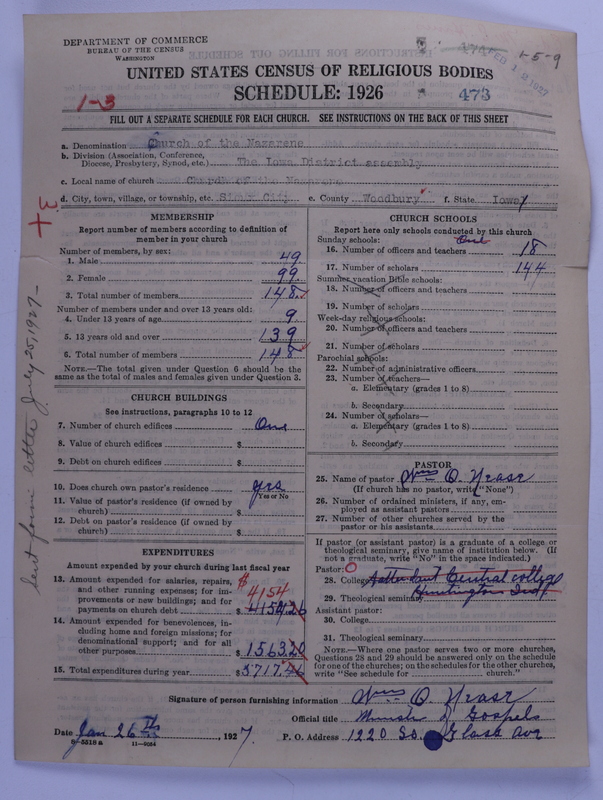 DEPARTMENT OF COMMERCE
BUREAU OF THE CENSUS
WASHINGTON
1-5-9
UNITED STATES CENSUS OF RELIGIOUS BODIES
SCHEDULE: 1926
473
1-3
FILL OUT A SEPARATE SCHEDULE FOR EACH CHURCH. SEE INSTRUCTIONS ON THE BACK OF THIS SHEET
a. Denomination Church of the Nazarene
b. Division (Association, Conference, Diocese, Presbytery, Synod, etc.) The Iowa District assembly
c. Local name of church Church of the Nazarene
d. City, town, village, or township, etc. Sioux City e. County Woodbury f. State Iowa
MEMBERSHIP
Report number of members according to definition of member in your church
Number of members, by sex:
1. Male 49
2. Female 99
3. Total number of members 148
Number of members under and over 13 years old:
4. Under 13 years of age 9
5. 13 years old and over 139
6. Total number of members 148
NOTE.—The total given under Question 6 should be the same as the total of males and females given under Question 3.
CHURCH BUILDINGS
See instructions, paragraphs 10 to 12
7. Number of church edifices One
8. Value of church edifices $
9. Debt on church edifices $
10. Does church own pastor's residence? yes
Yes or No
11. Value of pastor's residence (if owned by church) $
12. Debt on pastor's residence (if owned by church) $
EXPENDITURES
Amount expended by your church during last fiscal year
13. Amount expended for salaries, repairs, and other running expenses; for improvements or new buildings; and for payments on church debt $ 4154 4154.26
14. Amount expended for benevolences, including home and foreign missions; for denominational support; and for all other purposes $ 1563.20
15. Total expenditures during year $ 5717.46
CHURCH SCHOOLS
Report here only schools conducted by this church
Sunday schools: One
16. Number of officers and teachers 18
17. Number of scholars 144
Summer vacation Bible schools:
18. Number of officers and teachers
19. Number of scholars
Week-day religious schools:
20. Number of officers and teachers
21. Number of scholars
Parochial schools:
22. Number of administrative officers
23. Number of teachers—
a. Elementary (grades 1 to 8)
b. Secondary
24. Number of scholars—
a. Elementary (grades 1 to 8)
b. Secondary
PASTOR
25. Name of pastor Wm O.
(If church has no pastor, write "None")
26. Number of ordained ministers, if any, employed as assistant pastors
27. Number of other churches served by the pastor or his assistants
If pastor (or assistant pastor) is a graduate of a college or theological seminary, give name of institution below. (If not a graduate, write "No" in the space indicated.)
Pastor: O
28. College Attendant Central college
29. Theological seminary Huntington Ind
Assistant pastor:
30. College
31. Theological seminary
NOTE.—Where one pastor serves two or more churches, Questions 28 and 29 should be answered only on the schedule for one of the churches; on the schedules for the other churches, write "See schedule for church."
Signature of person furnishing information Wm O.
Official title Minister of Gospels
Date Jan 26th, 1927.
P. O. Address 1220 So. Ave
8-5518 a
11-9064
sent form letter July 25, 1927-